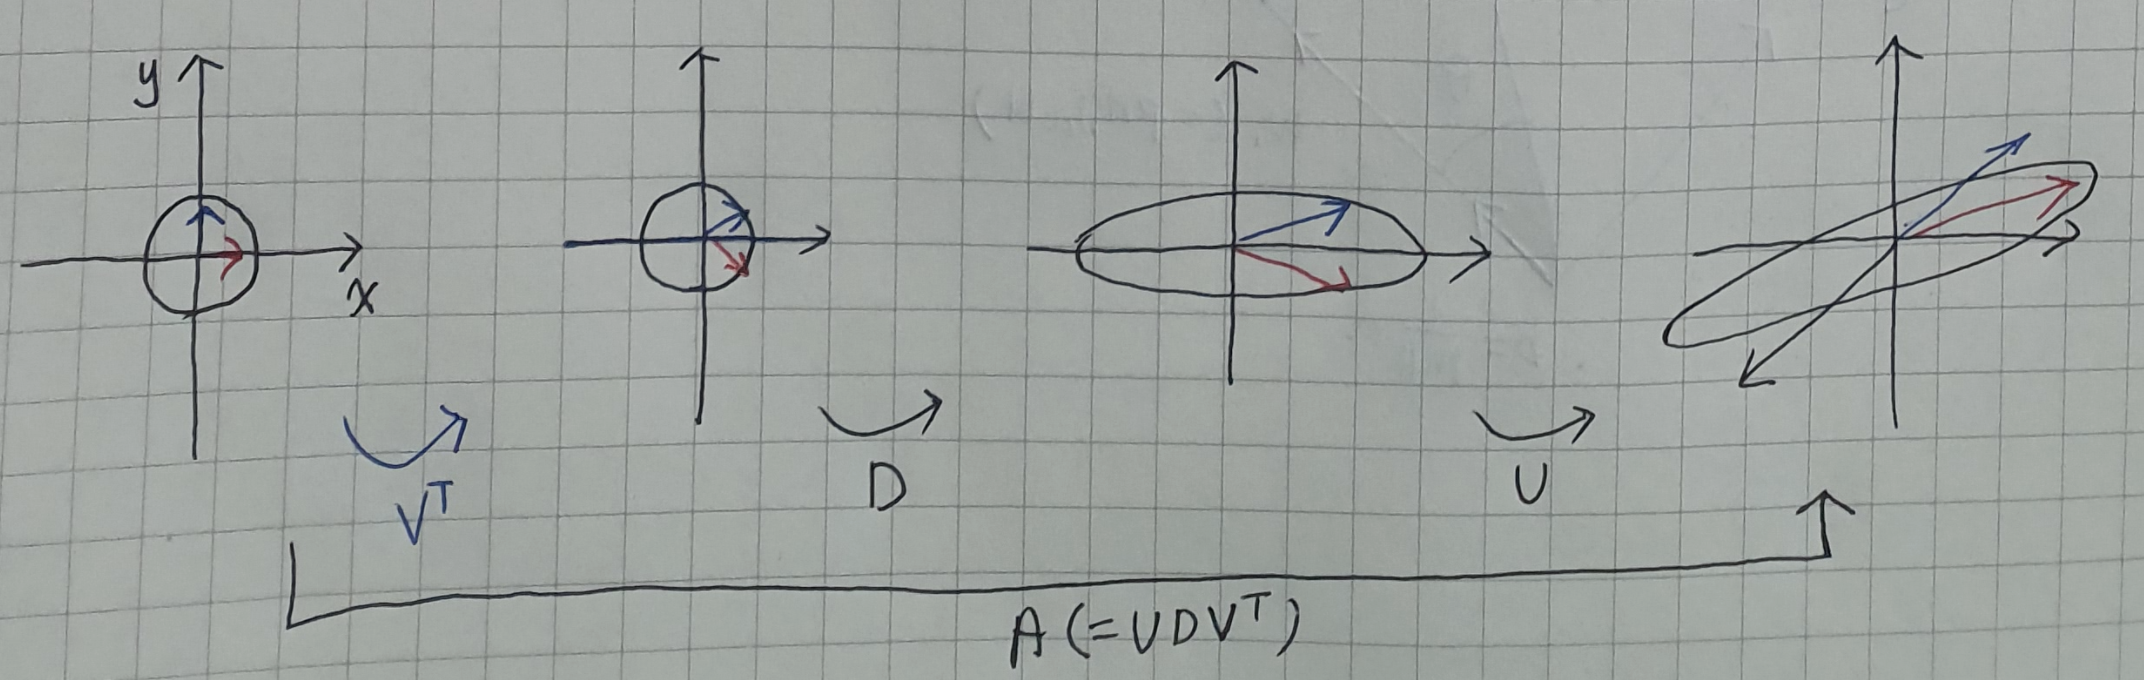 y
x
V^T
D
U
A (= U D V^T)